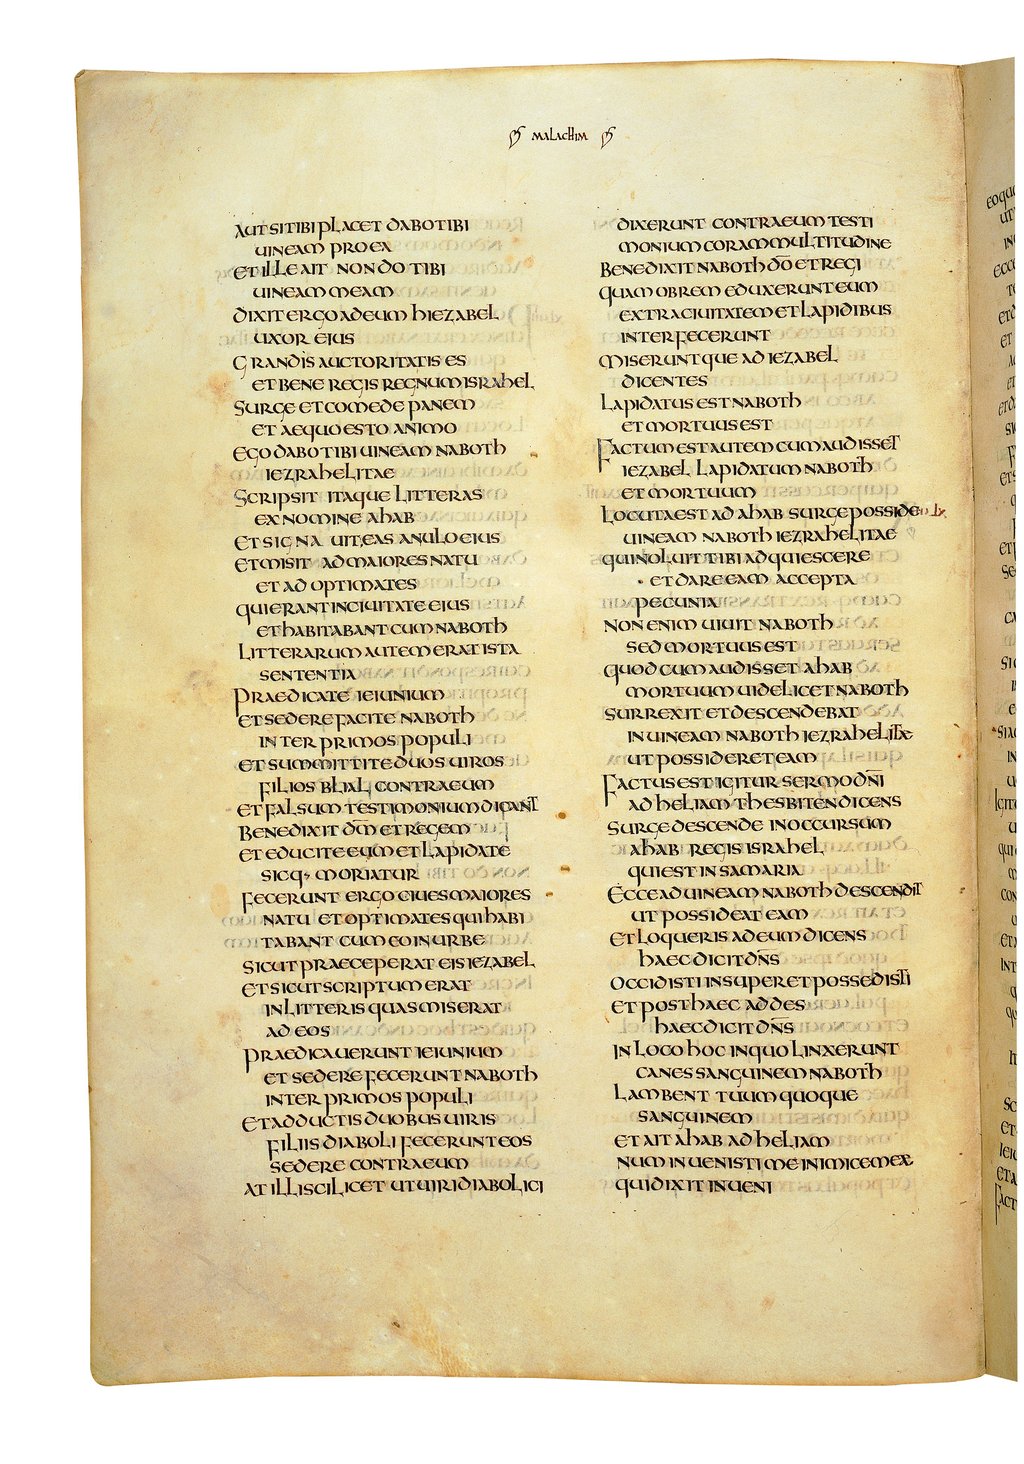 MALACHIM
AUT SI TIBI PLACET DABO TIBI
UINEAM PRO EA
ET ILLE AIT NON DO TIBI
UINEAM MEAM
DIXIT ERGO AD EUM HIEZABEL
UXOR EIUS
GRANDIS AUCTORITATIS ES
ET BENE REGIS REGNUM ISRAHEL
SURGE ET COMEDE PANEM
ET AEQUO ESTO ANIMO
EGO DABO TIBI UINEAM NABOTH
IEZRAHELITAE
SCRIPSIT ITAQUE LITTERAS
EX NOMINE AHAB
ET SIGNAUIT EAS ANULO EIUS
ET MISIT AD MAIORES NATU
ET AD OPTIMATES
QUI ERANT IN CIUITATE EIUS
ET HABITABANT CUM NABOTH
LITTERARUM AUTEM ERAT ISTA
SENTENTIA
PRAEDICATE IEIUNIUM
ET SEDERE FACITE NABOTH
INTER PRIMOS POPULI
ET SUMMITTITE DUOS UIROS
FILIOS BLIAL CONTRA EUM
ET FALSUM TESTIMONIUM DICANT
BENEDIXIT DM̅ ET REGEM
ET EDUCITE EUM ET LAPIDATE
SICQ· MORIATUR
FECERUNT ERGO CIUES MAIORES
NATU ET OPTIMATES QUI HABI
TABANT CUM EO IN URBE
SICUT PRAECEPERAT EIS IEZABEL
ET SICUT SCRIPTUM ERAT
IN LITTERIS QUAS MISERAT
AD EOS
PRAEDICAUERUNT IEIUNIUM
ET SEDERE FECERUNT NABOTH
INTER PRIMOS POPULI
ET ADDUCTIS DUOBUS UIRIS
FILIIS DIABOLI FECERUNT EOS
SEDERE CONTRA EUM
AT ILLI SCILICET UT UIRI DIABOLICI
DIXERUNT CONTRA EUM TESTI
MONIUM CORAM MULTITUDINE
BENEDIXIT NABOTH DO̅ ET REGI
QUAM OB REM EDUXERUNT EUM
EXTRA CIUITATEM ET LAPIDIBUS
INTERFECERUNT
MISERUNTQUE AD IEZABEL
DICENTES
LAPIDATUS EST NABOTH
ET MORTUUS EST
FACTUM EST AUTEM CUM AUDISSET
IEZABEL LAPIDATUM NABOTH
ET MORTUUM
LOCUTA EST AD AHAB SURGE POSSIDE
UINEAM NABOTH IEZRAHELITAE
QUI NOLUIT TIBI ADQUIESCERE
ET DARE EAM ACCEPTA
PECUNIA
NON ENIM UIUIT NABOTH
SED MORTUUS EST
QUOD CUM AUDISSET AHAB
MORTUUM UIDELICET NABOTH
SURREXIT ET DESCENDEBAT
IN UINEAM NABOTH IEZRAHELITAE
UT POSSIDERET EAM
FACTUS EST IGITUR SERMO DN̅I
AD HELIAM THESBITEN DICENS
SURGE DESCENDE IN OCCURSUM
AHAB REGIS ISRAHEL
QUI EST IN SAMARIA
ECCE AD UINEAM NABOTH DESCENDIT
UT POSSIDEAT EAM
ET LOQUERIS AD EUM DICENS
HAEC DICIT DN̅S
OCCIDISTI INSUPER ET POSSEDISTI
ET POST HAEC ADDES
HAEC DICIT DN̅S
IN LOCO HOC IN QUO LINXERUNT
CANES SANGUINEM NABOTH
LAMBENT TUUM QUOQUE
SANGUINEM
ET AIT AHAB AD HELIAM
NUM INUENISTI ME INIMICE MEE
QUI DIXIT INUENI